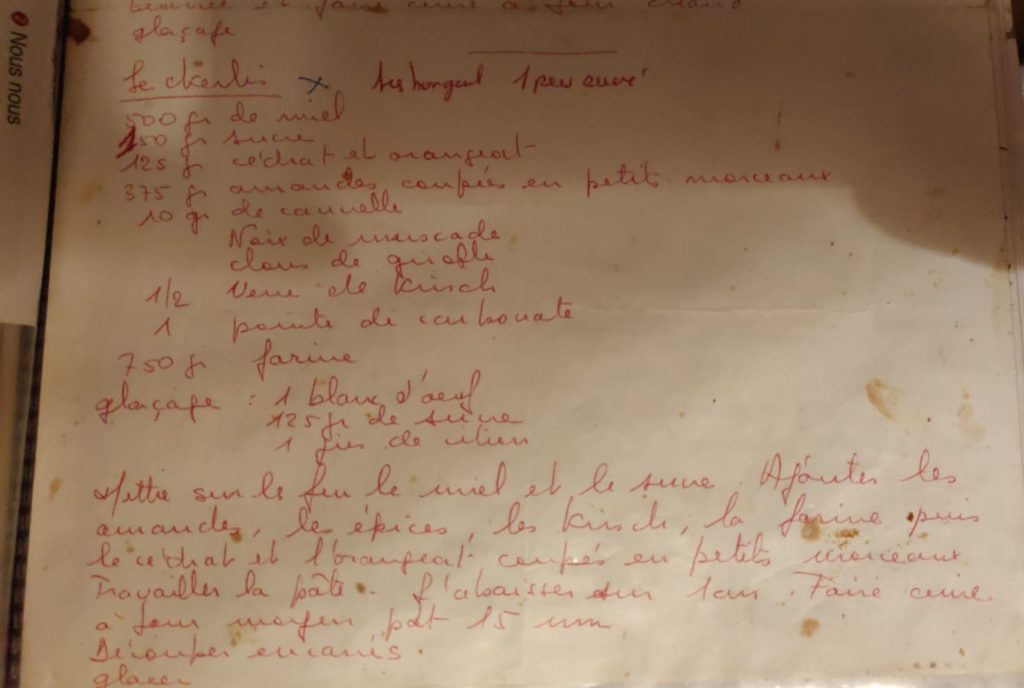 et faire cuire à four chaud
glaçage
Nous nous
Leckerlis x très bon 1 peu sucré
500 gr de miel
150 gr sucre
125 g cédrat et orangeat
375 gr amandes coupées en petits morceaux
10 gr de cannelle
Noix de muscade
clous de girofle
1/2 Verre de Kirsch
1 pointe de carbonate
750 gr farine
glaçage : 1 blanc d'oeuf
125 gr de sucre
1 jus de citron
Mettre sur le feu le miel et le sucre. Ajouter les
amandes, les épices, les Kirsch, la farine puis
le cédrat et l'orangeat coupés en petits morceaux
Travailler la pâte. L'abaisser sur 1cm. Faire cuire
à four moyen pdt 15 mm
Découper en carrés.
glacer